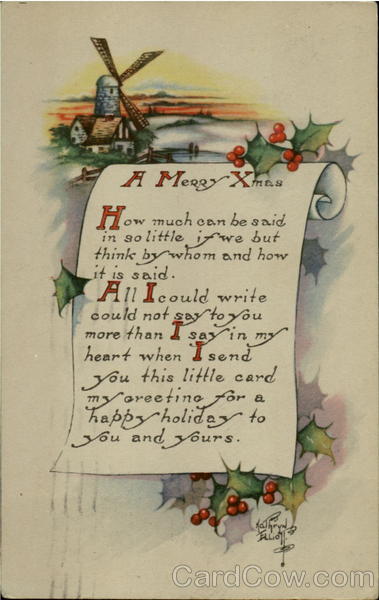 A Merry Xmas
How much can be said
in so little if we but
think by whom and how
it is said.
All I could write
could not say to you
more than I say in my
heart when I send
you this little card
my greeting for a
happy holiday to
you and yours.
Kathryn
Elliott
CardCow.com